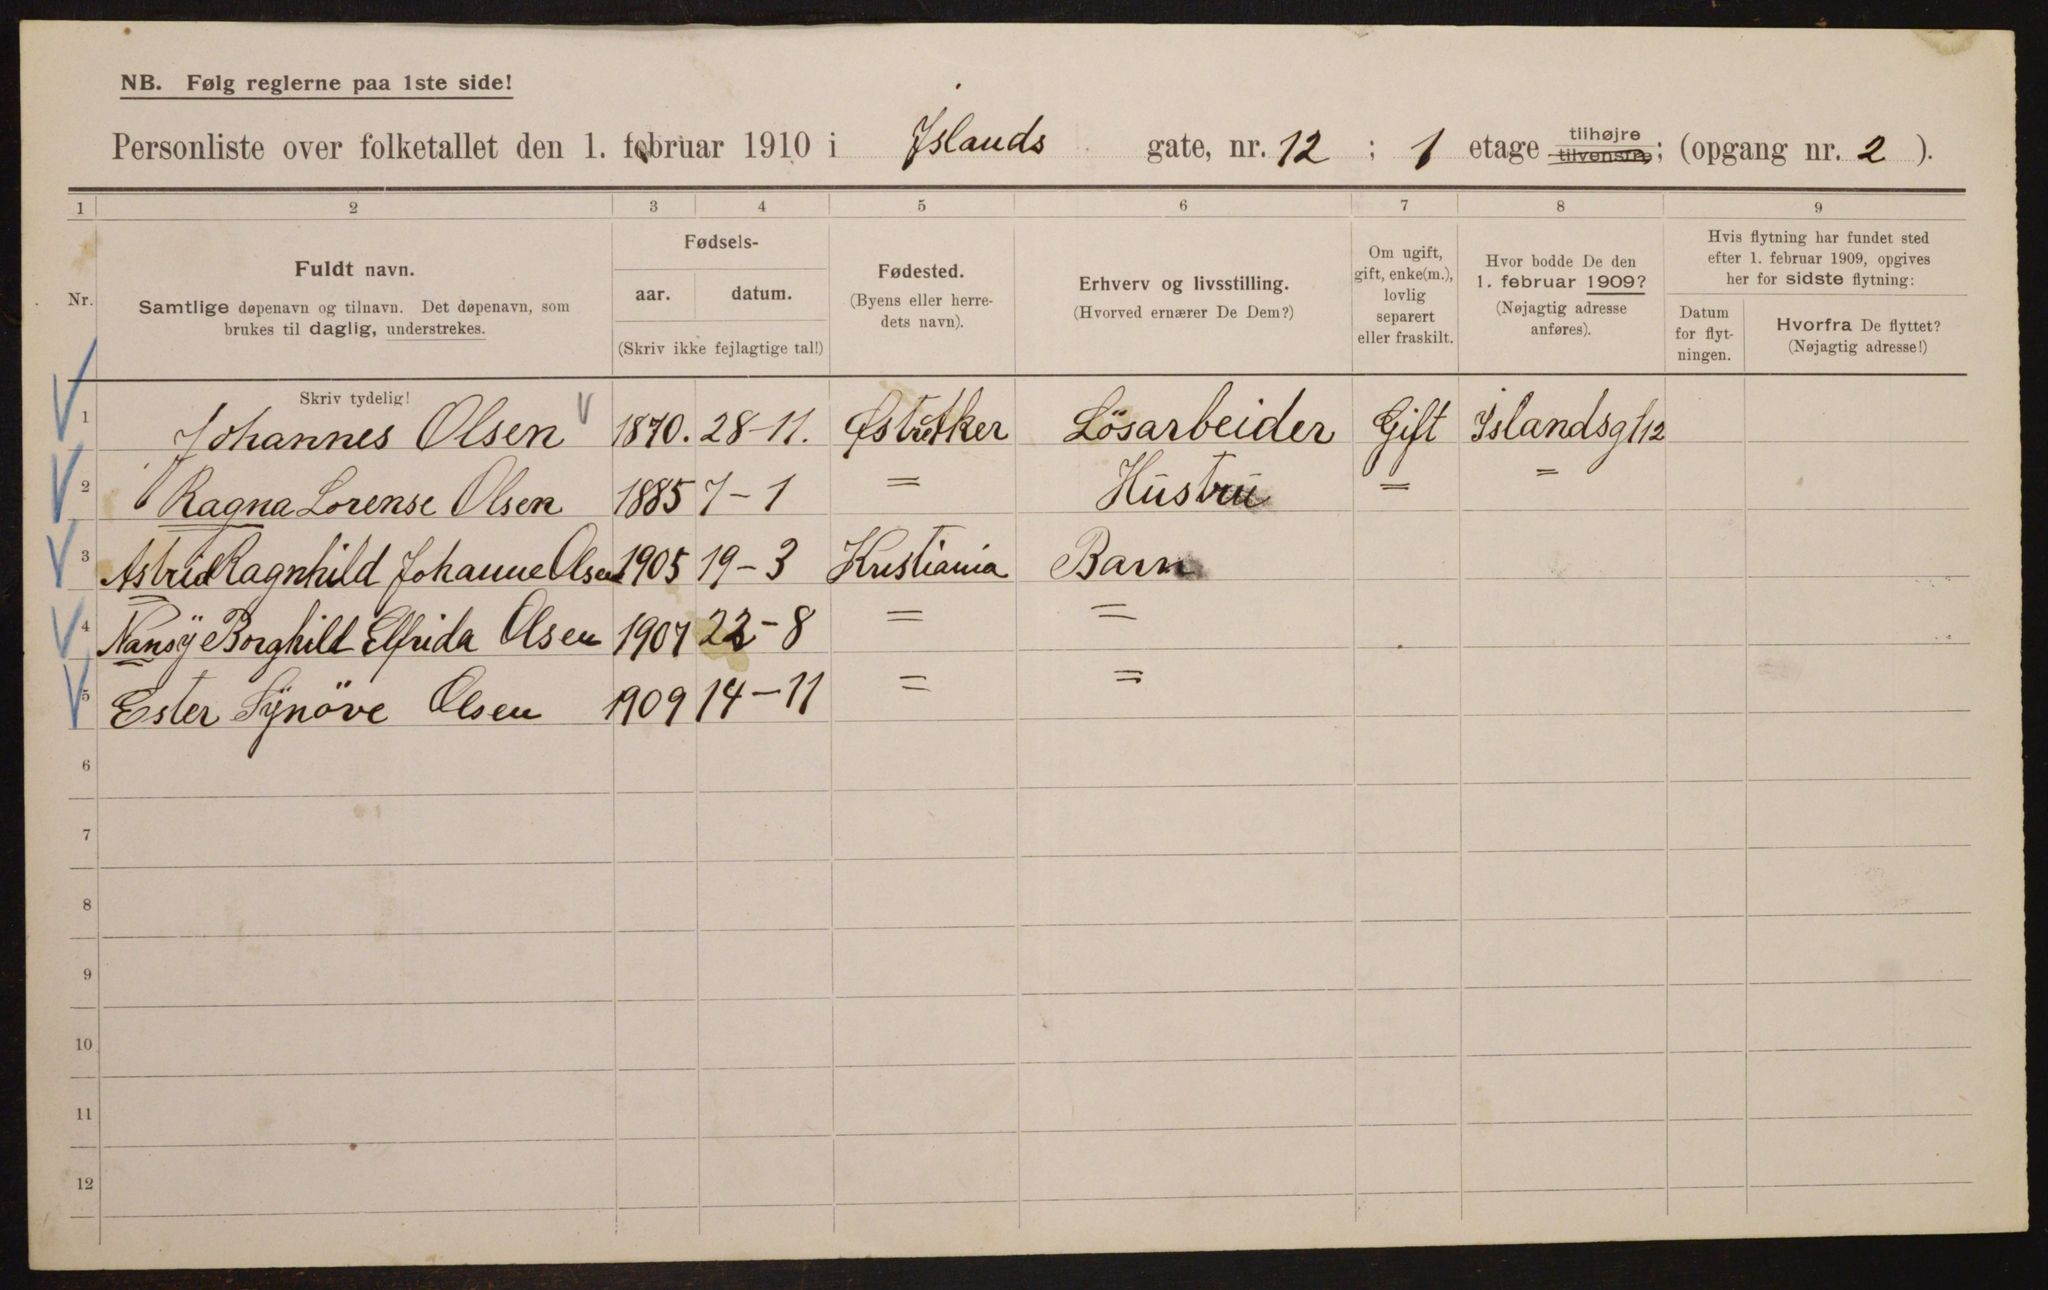 NB. Følg reglerne paa 1ste side!
Personliste over folketallet den 1. februar 1910 i Islands gate, nr. 12 ; 1 etage tilhøjre tilvenstre; (opgang nr. 2 ).
1 2 3 4 5 6 7 8 9
Nr.
Fuldt navn.
Samtlige døpenavn og tilnavn. Det døpenavn, som
brukes til daglig, understrekes.
Fødsels-
aar. datum.
(Skriv ikke fejlagtige tal!)
Fødested.
(Byens eller herre-
dets navn).
Erhverv og livsstilling.
(Hvorved ernærer De Dem?)
Om ugift,
gift, enke(m.),
lovlig
separert
eller fraskilt.
Hvor bodde De den
1. februar 1909?
(Nøjagtig adresse
anføres).
Hvis flytning har fundet sted
efter 1. februar 1909, opgives
her for sidste flytning:
Datum
for flyt-
ningen.
Hvorfra De flyttet?
(Nøjagtig adresse!)
Skriv tydelig!
1 Johannes Olsen 1870. 28-11. Østre Aker Lösarbeider Gift Islandsgt 12
2 Ragna Lorense Olsen 1885 7-1 = Hustru = =
3 Astrid Ragnhild Johanne Olsen 1905 19-3 Kristiania Barn
4 Nansy Borghild Elfrida Olsen 1907 22-8 = =
5 Ester Synöve Olsen 1909 14-11 = =
6
7
8
9
10
11
12